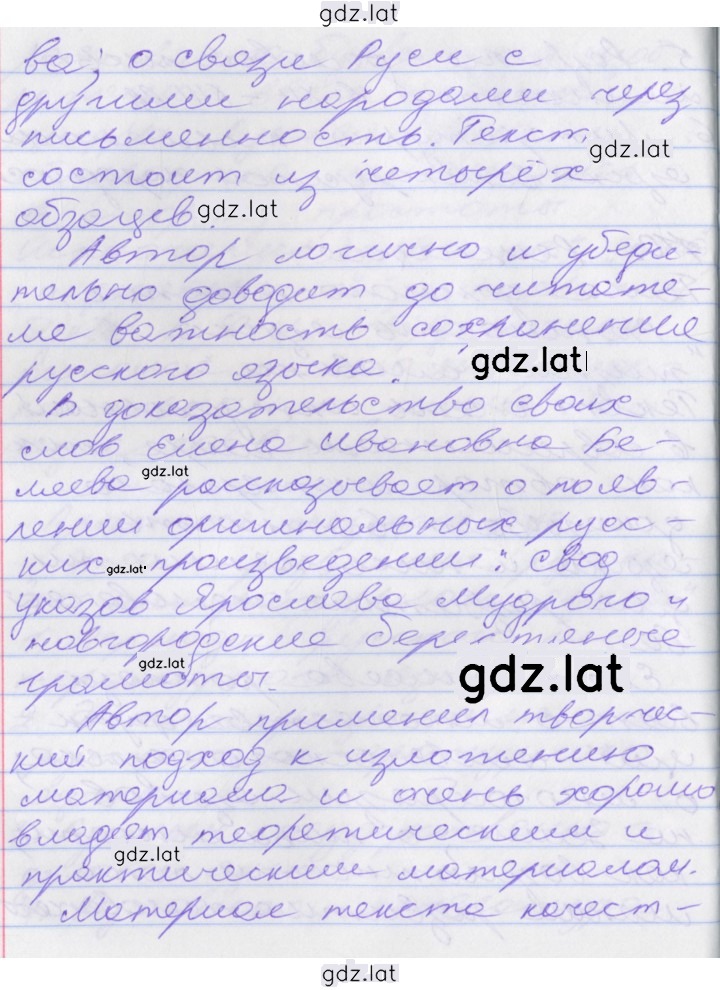 gdz.lat
ва; о связи Руси с
другими народами через
письменность. Текст
gdz.lat
состоит из четырёх
абзацев.
gdz.lat
Автор логично и убеди-
тельно доводит до читате-
ля важность сохранения
русского языка.
gdz.lat
В доказательство своих
слов Елена Ивановна Бе-
gdz.lat
ляева рассказывает о появ-
лении оригинальных русс-
ких произведений: свод
gdz.lat
указов Ярослава Мудрого и
новгородские берестяные
gdz.lat
грамоты.
gdz.lat
Автор применил творчес-
кий подход к изложению
материала и очень хорошо
владеет теоретическим и
gdz.lat
практическим материалом.
Материал текста качест-
gdz.lat